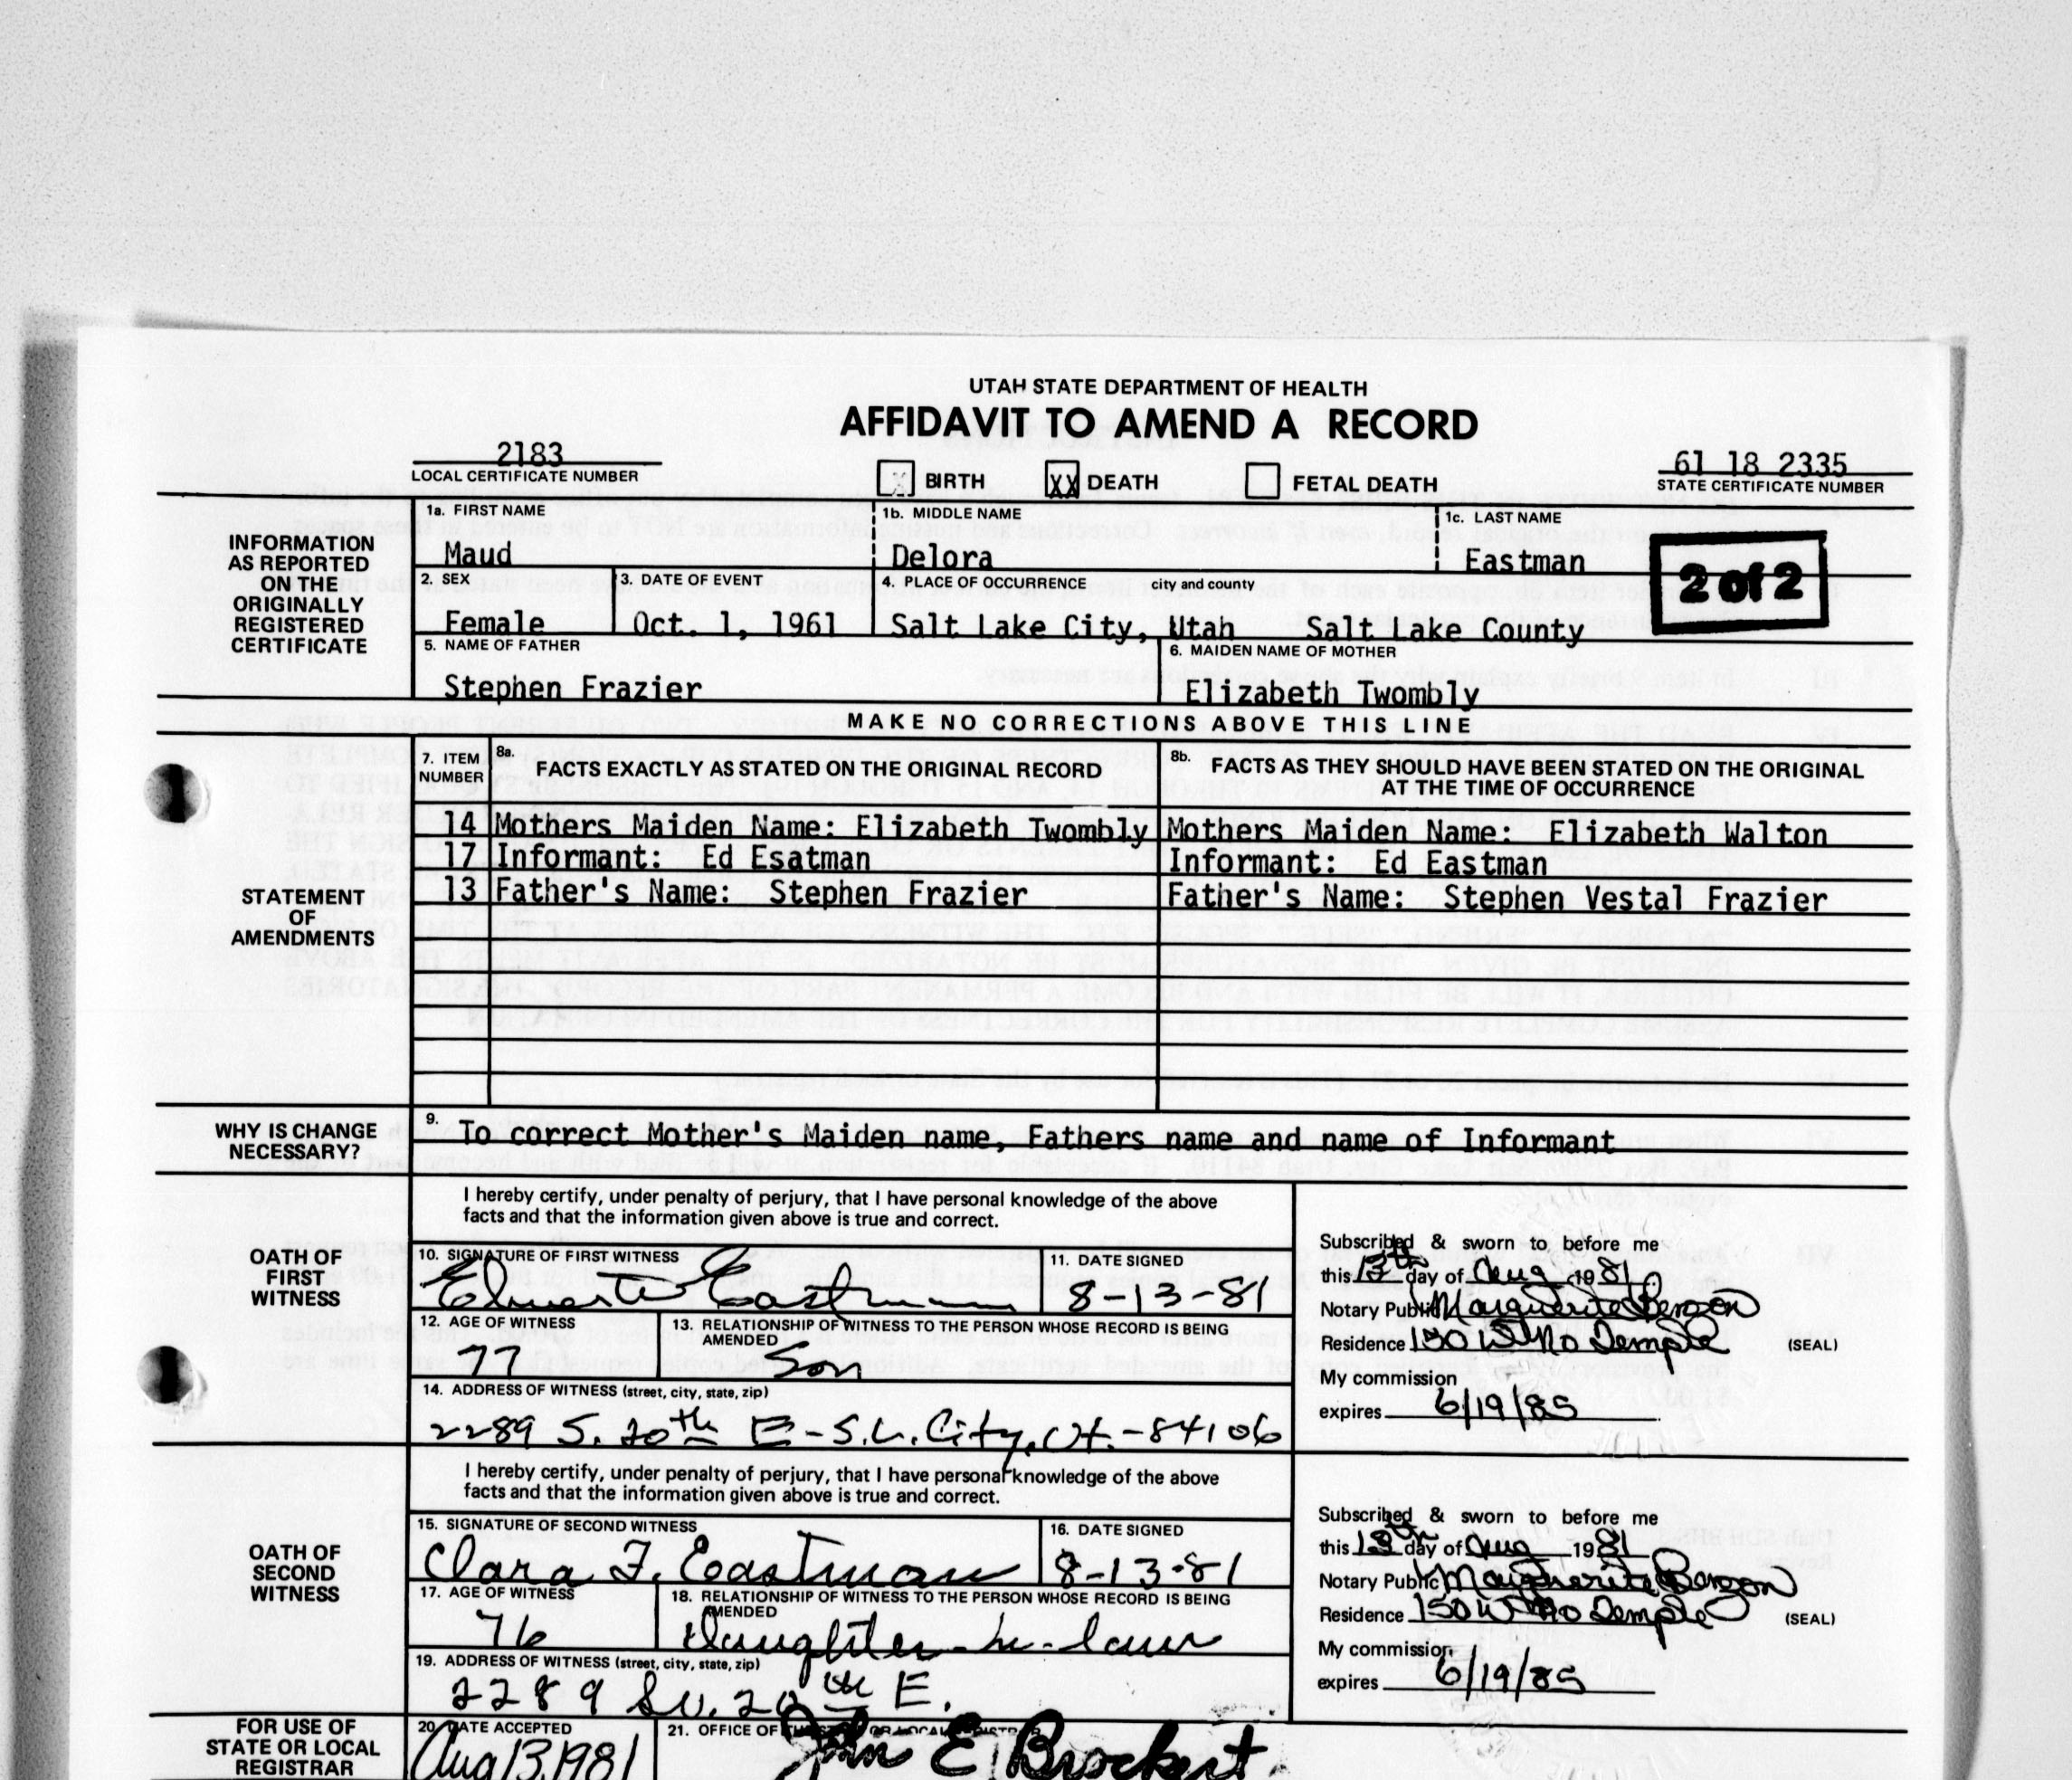 UTAH STATE DEPARTMENT OF HEALTH
AFFIDAVIT TO AMEND A RECORD
2183
LOCAL CERTIFICATE NUMBER
X BIRTH XX DEATH FETAL DEATH
61 18 2335
STATE CERTIFICATE NUMBER
INFORMATION AS REPORTED ON THE ORIGINALLY REGISTERED CERTIFICATE
1a. FIRST NAME 1b. MIDDLE NAME 1c. LAST NAME
Maud Delora Eastman
2 of 2
2. SEX 3. DATE OF EVENT 4. PLACE OF OCCURRENCE city and county
Female Oct. 1, 1961 Salt Lake City, Utah Salt Lake County
5. NAME OF FATHER 6. MAIDEN NAME OF MOTHER
Stephen Frazier Elizabeth Twombly
MAKE NO CORRECTIONS ABOVE THIS LINE
STATEMENT OF AMENDMENTS
7. ITEM NUMBER 8a. FACTS EXACTLY AS STATED ON THE ORIGINAL RECORD 8b. FACTS AS THEY SHOULD HAVE BEEN STATED ON THE ORIGINAL AT THE TIME OF OCCURRENCE
14 Mothers Maiden Name: Elizabeth Twombly Mothers Maiden Name: Elizabeth Walton
17 Informant: Ed Esatman Informant: Ed Eastman
13 Father's Name: Stephen Frazier Father's Name: Stephen Vestal Frazier
WHY IS CHANGE NECESSARY?
9. To correct Mother's Maiden name, Fathers name and name of Informant
OATH OF FIRST WITNESS
I hereby certify, under penalty of perjury, that I have personal knowledge of the above
facts and that the information given above is true and correct.
10. SIGNATURE OF FIRST WITNESS 11. DATE SIGNED
Eastman 8-13-81
12. AGE OF WITNESS 13. RELATIONSHIP OF WITNESS TO THE PERSON WHOSE RECORD IS BEING AMENDED
77 Son
14. ADDRESS OF WITNESS (street, city, state, zip)
2289 S. 20th E - S.L. City, Ut. - 84106
Subscribed & sworn to before me
this 13th day of Aug 1981
Notary Public Marguerite Benzon
Residence 150 W No Temple (SEAL)
My commission
expires 6/19/85
OATH OF SECOND WITNESS
I hereby certify, under penalty of perjury, that I have personal knowledge of the above
facts and that the information given above is true and correct.
15. SIGNATURE OF SECOND WITNESS 16. DATE SIGNED
Clara F. Eastman 8-13-81
17. AGE OF WITNESS 18. RELATIONSHIP OF WITNESS TO THE PERSON WHOSE RECORD IS BEING AMENDED
76 Daughter-in-law
19. ADDRESS OF WITNESS (street, city, state, zip)
2289 So. 20th E.
Subscribed & sworn to before me
this 13th day of Aug 1981
Notary Public Marguerite Benzon
Residence 150 W No Temple (SEAL)
My commission
expires 6/19/85
FOR USE OF STATE OR LOCAL REGISTRAR
20. DATE ACCEPTED 21. OFFICE OF THE STATE OR LOCAL REGISTRAR
Aug 13, 1981 John E Brockert